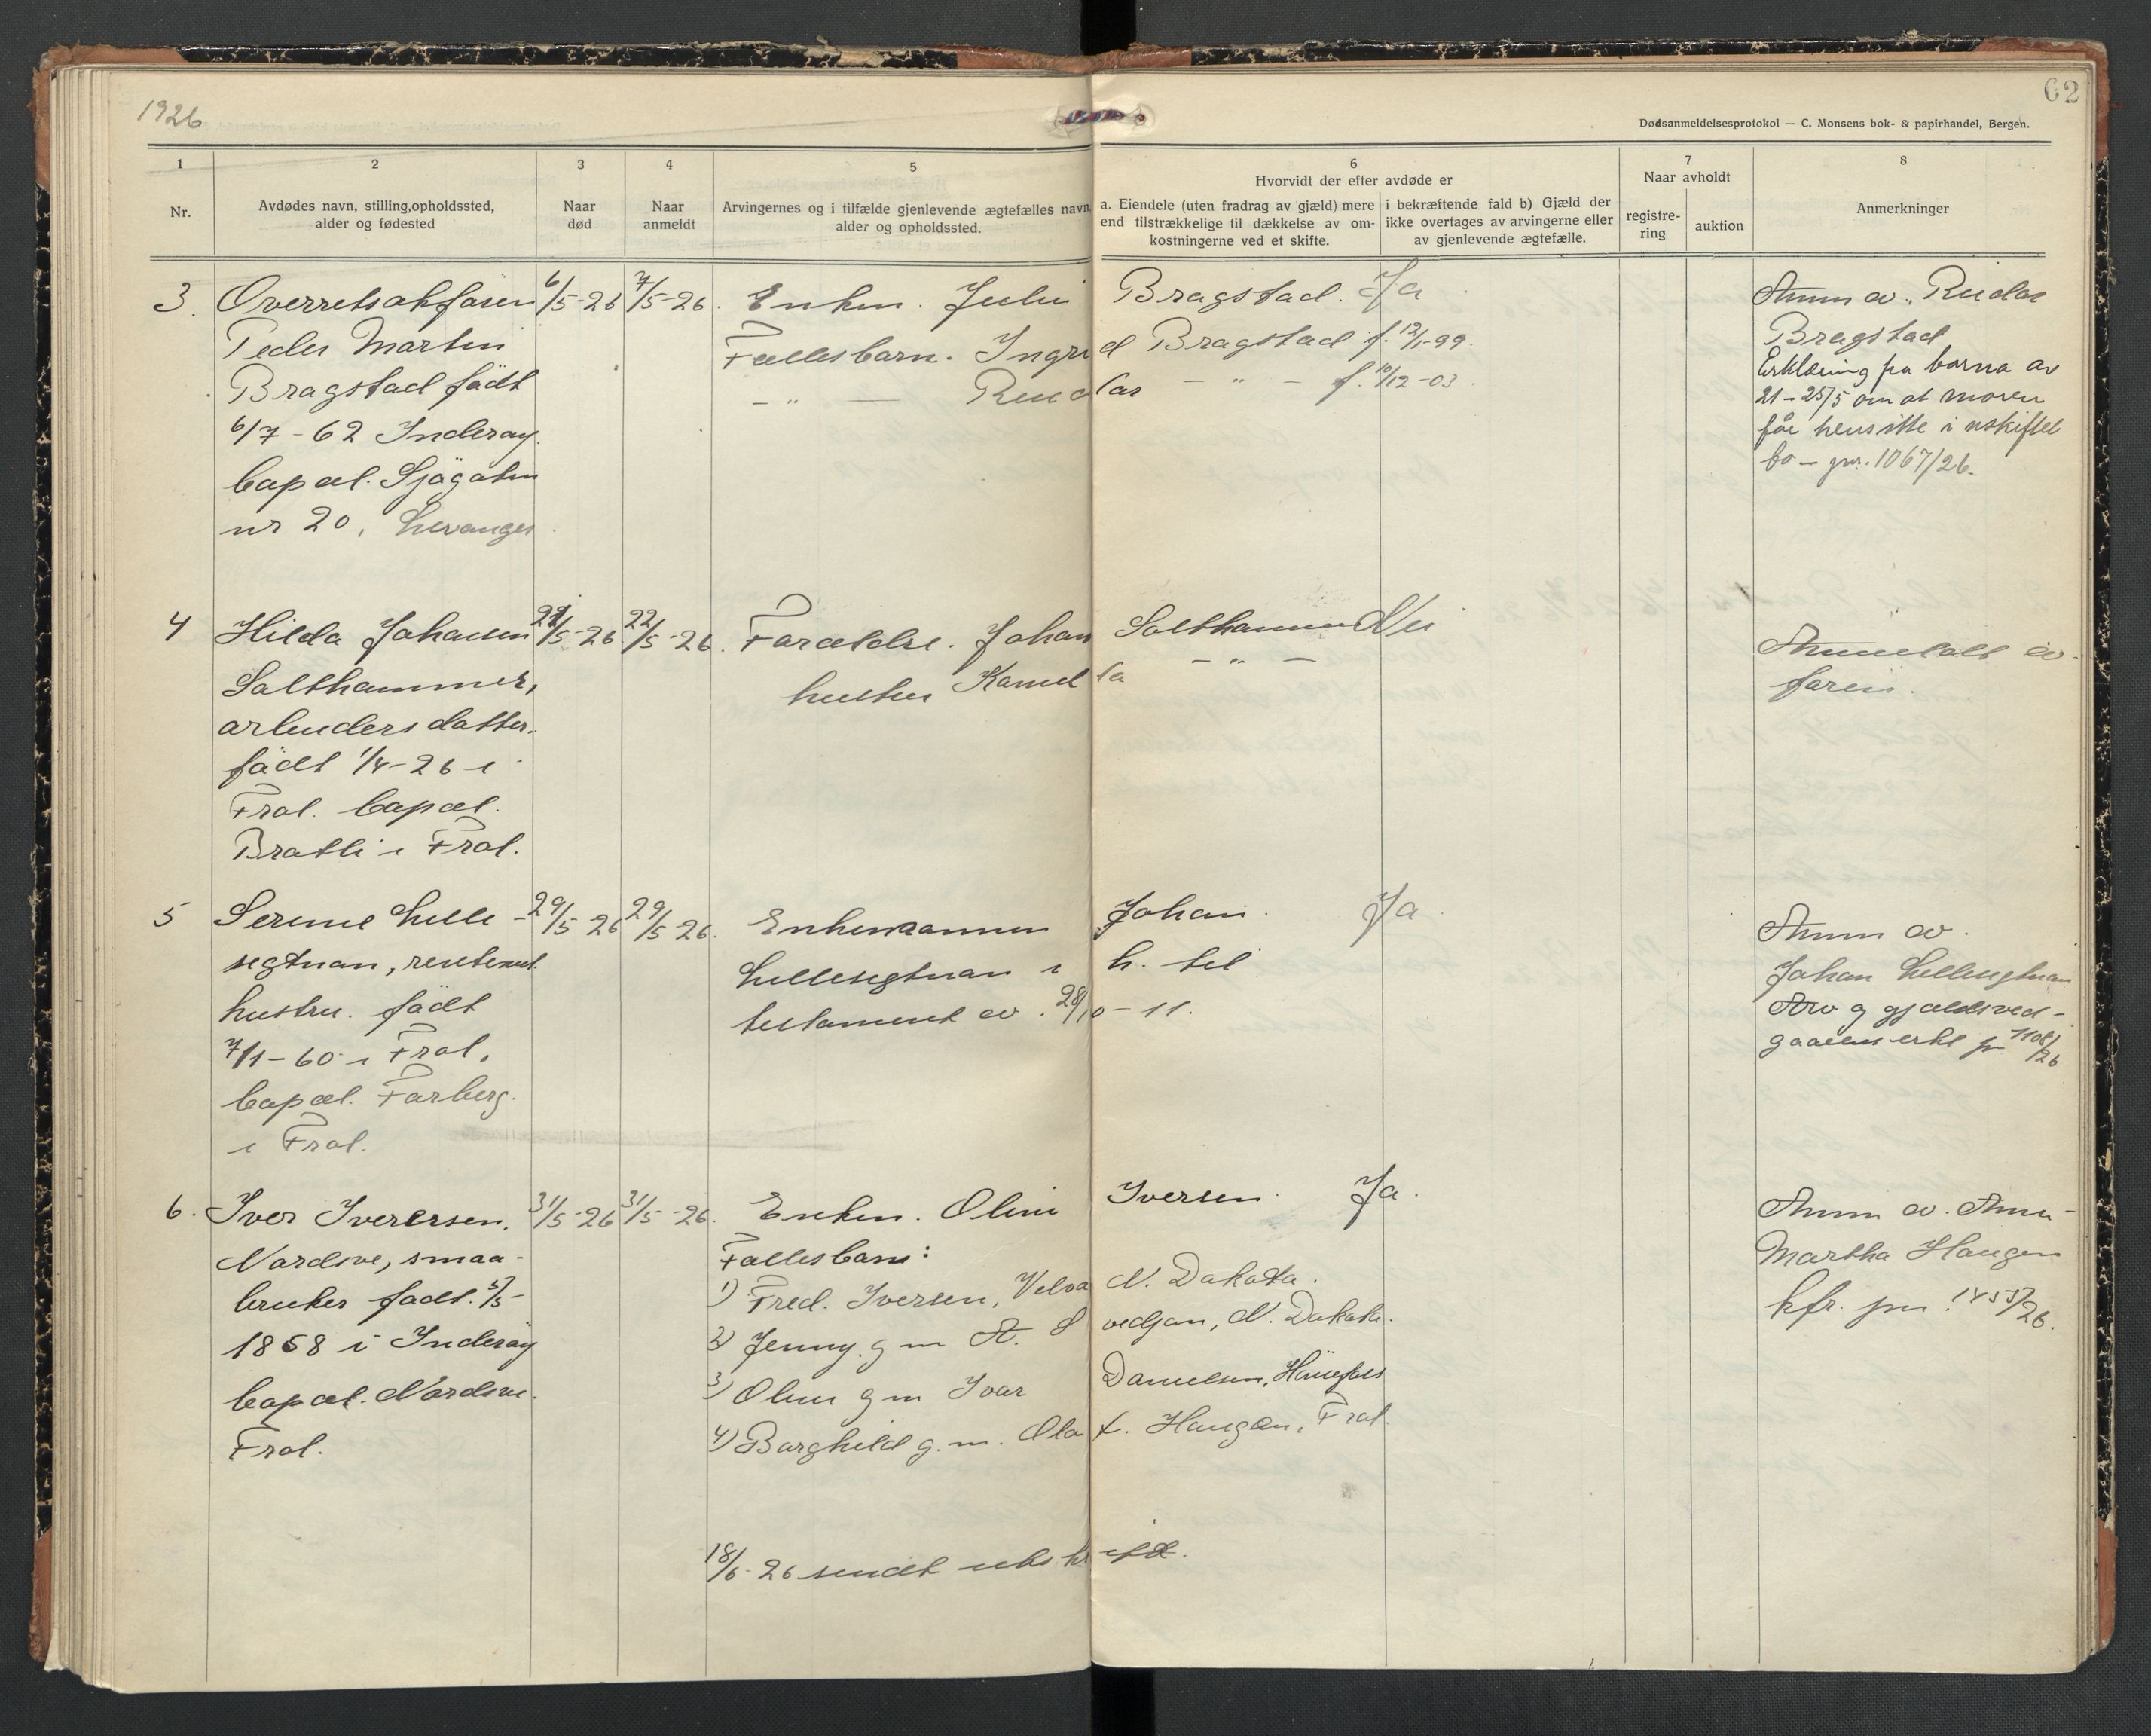 1926
62
Dødsanmeldelsesprotokol — C. Monsens bok- & papirhandel, Bergen.
1
2
3
4
5
6
7
8
Nr.
Avdødes navn, stilling, opholdssted,
alder og fødested
Naar
død
Naar
anmeldt
Arvingernes og i tilfælde gjenlevende ægtefælles navn,
alder og opholdssted.
Hvorvidt der efter avdøde er
a. Eiendele (uten fradrag av gjæld) mere
end tilstrækkelige til dækkelse av om-
kostningerne ved et skifte.
i bekræftende fald b) Gjæld der
ikke overtages av arvingerne eller
av gjenlevende ægtefælle.
Naar avholdt
registre-
ring
auktion
Anmerkninger
3.
Overretssakfører
Peder Martin
Bragstad født
6/7-62 Inderøy.
bopæl. Sjøgaten
nr 20, Levanger
6/5-26
7/5-26.
Enken. Julie Bragstad. Ja
Fællesbarn. Ingrid Bragstad f. 12/1-99.
— " — Reidar — " — f. 10/12-03.
Anm av. Reidar
Bragstad
Erklæring fra barna av
21-25/5 om at moren
får hensitte i uskiftet
bo – jnr. 1067/26.
4
Hilda Johansen
Salthammer,
arbeiders datter.
født 1/4-26 i
Frol. bopæl.
Bratli i Frol.
/5-26
22/5-26.
Forældre. Johan Salthammer Nei
hustru Kamilla — " —
Anmeldt av.
faren.
5
Serine Lille-
segtnan, rentenist.
hustru. født
7/1-60 i Frol.
bopæl. Farberg.
i Frol.
29/5-26
29/5-26.
Enkemannen Johan. Ja.
Lillesegtnan i h. til
testament av. 28/10-11.
Anm av.
Johan Lillesegtnan
Arv og gjældsved-
gaaelses erkl jnr 1108/26
6.
Iver Iverersen.
Nordsve, smaa-
bruker født. 5/5-
1858 i Inderøy
bopæl. Nordsve.
Frol.
31/5-26
31/5-26.
Enken. Oline Iversen. Ja.
Fællesbarn:
1) Fred. Iversen, Velva N. Dakota.
2) Jenny. g m A. S vedjan, N. Dakota.
3) Oline g m Ivar Danielsen,
4) Borghild g. m. Olaf. Haugan, Frol.
18/6-26 sendt utskrift.
Anm av. Anne-
Martha Haugen
kfr. jnr. 1455/26.